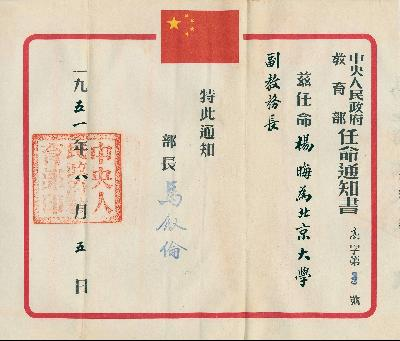 中央人民政府
教育部
任命通知書
字第 號
茲任命楊晦為北京大學
副教務長
特此通知
部長 馬叙倫
一九五一年八月五日
中央人